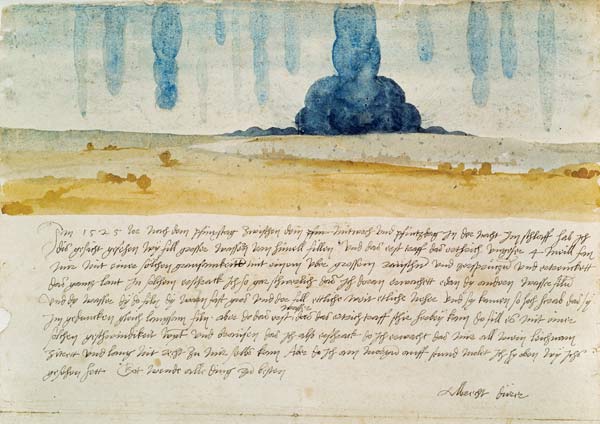 Im 1525 Jor nach dem pfinxstag zwischen dem mitwoch und pfintzdag in der nacht im schlaff hab ich
dis gesicht gesehen wy fill grosser wassern vom himell fillen Und das erst traff das erthrich ungefer 4 meill fan
mir mit einer solchen grausamkeitt mit einem uber grossem raüschn und zersprützn und ertrenckett
das gannz lant In solchem erschrack ich so gar schwerlich das ich doran erwachett edan dy andern wasser filn
und dy wasser dy do filn dy warn fast gros und der fill ettliche weit etliche neher und sy kamen so hoch herab das sy
im gedancken gleich langsam filn aber do das erst wasser das das ertrich traff schir herbey kam do fill es mit einer
solchen geschwindikeit wynt und braüsen das ich also erschrack do ich erwacht das mir all mein leichnam
zitrett und lang nit recht zu mir selbs kam Aber do ich am morgen auff stund molet ich hy oben wy ichs
gesehen hett Got wende alle ding zu besten
Albrecht dürer